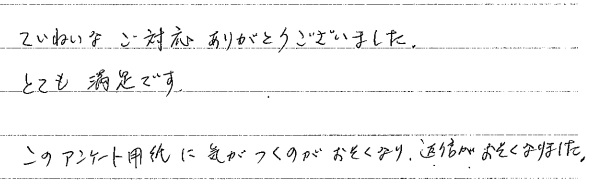 ていねいな ご対応 ありがとうございました.
とても 満足です
このアンケート用紙に気がつくのがおそくなり、返信がおそくなりました。